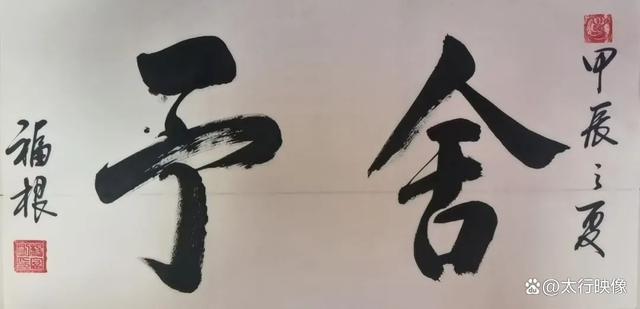 甲辰之夏
舍予
福根
太行映像